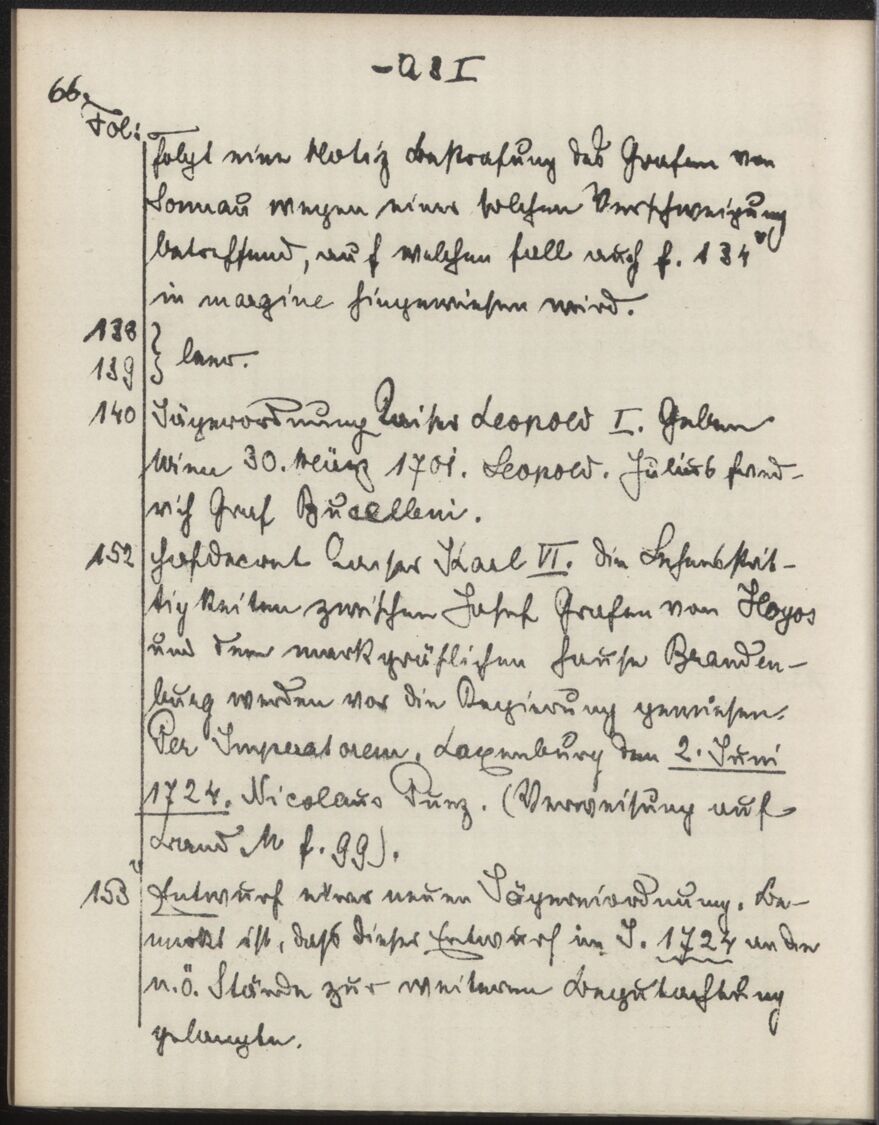 - A 8 I
66.
Fol:
folgt eine Notiz Bestrafung des Grafen von
Sonnau wegen einer solchen Verschweigung
betreffend, auf welchen Fall auch f. 134v
in margine hingewiesen wird.
138
139 } leer.
140 Jägerordnung Kaiser Leopold I. Geben
Wien 30. März 1701. Leopold. Julius Fried-
rich Graf Bucelleni.
152 Hofdecret Kaiser Karl VI. die Lehensstrit-
tigkeiten zwischen Josef Grafen von Hoyos
und dem markgräflichen Hause Branden-
burg werden vor die Regierung gewiesen.
Per Imperatorem. Laxenburg den 2. Juni
1724. Nicolaus Punz. (Verweisung auf
Band M f. 99).
153v Entwurf einer neuen Jägereiordnung. Be-
merkt ist, daß dieser Entwurf im J. 1724 an die
n.ö. Stände zur weiteren Begutachtung
gelangte.